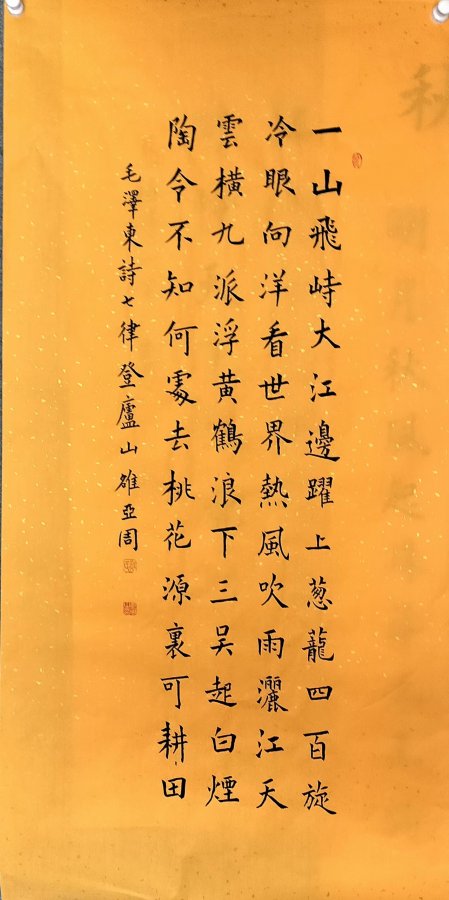 一山飛峙大江邊躍上葱蘢四百旋
冷眼向洋看世界熱風吹雨灑江天
雲横九派浮黄鶴浪下三吴起白煙
陶令不知何處去桃花源裏可耕田
毛澤東詩七律登廬山雒亞周